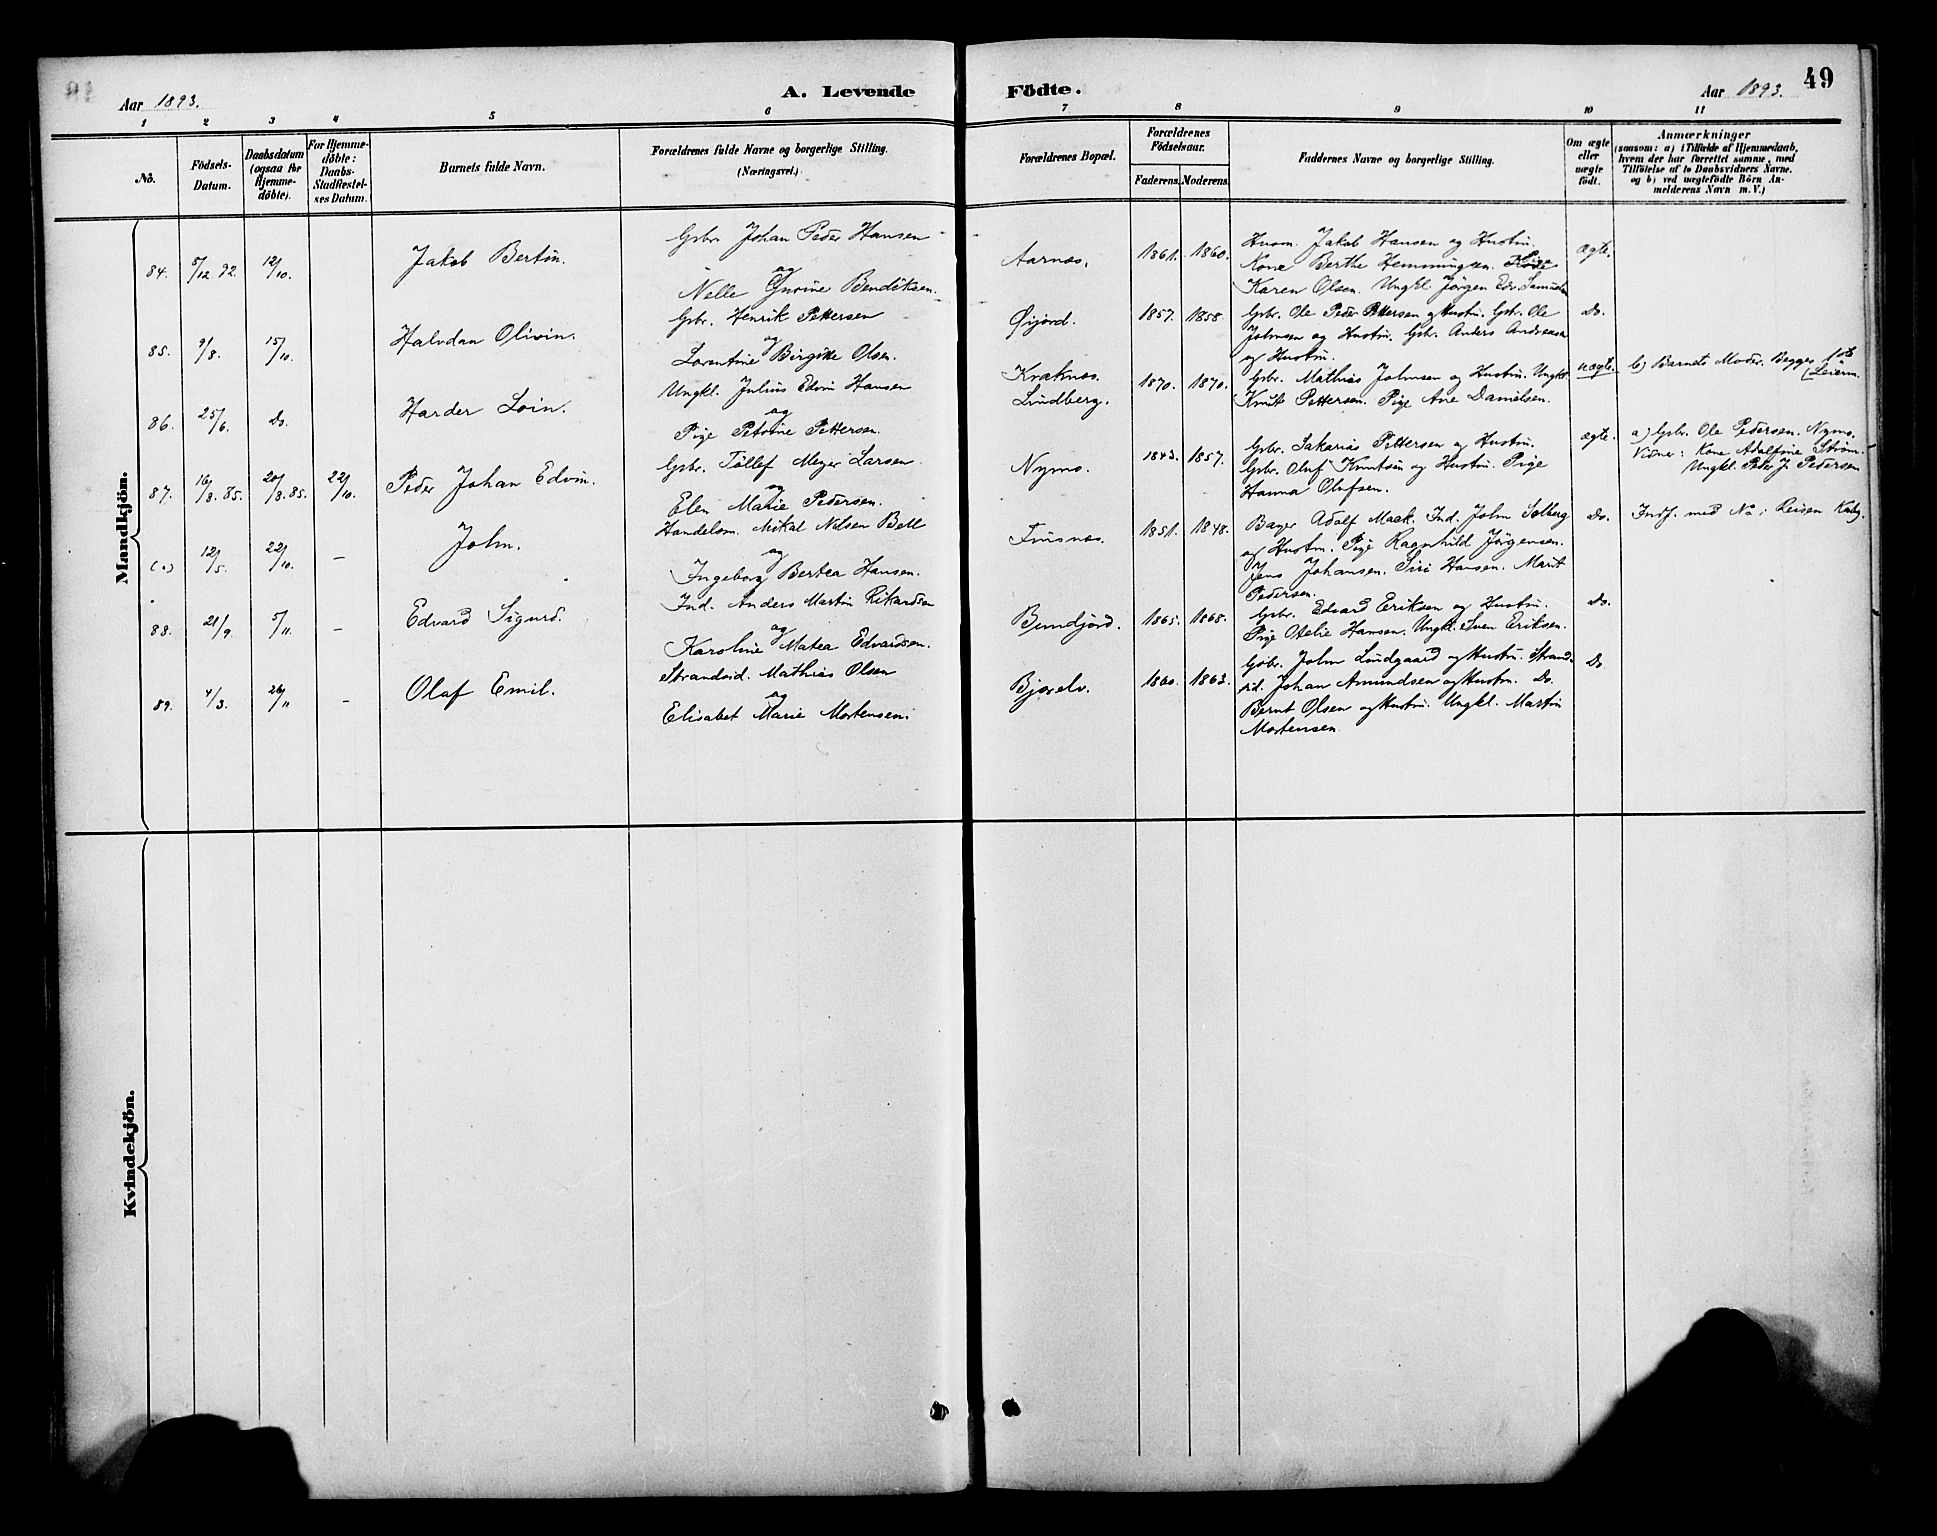 49
Aar 1893.
A. Levende
Födte.
Aar 1893.
1 2 3 4 5 6 7 8 9 10 11
No.
Födsels-Datum.
Daabsdatum (ogsaa for Hjemme-döbte).
For Hjemme-döbte: Daabs-Stadfæstel-ses Datum.
Barnets fulde Navn.
Forældrenes fulde Navne og borgerlige Stilling.
(Næringsvei.)
Forældrenes Bopæl.
Forældrenes Födselsaar.
Faderens. Moderens.
Faddernes Navne og borgerlige Stilling.
Om ægte eller uægte födt.
Anmærkninger
(saasom: a) i Tilfælde af Hjemmedaab,
hvem der har forrettet samme, med
Tilföielse af to Daabsvidners Navne.
og b) ved uægtefödte Börn An-
melderens Navn m. V.)
Mandkjön.
84. 5/12 92. 12/10. Jakob Bertin.
Gbr. Johan Peder Hansen
og
Nelle Gurine Bendiksen.
Aarnes. 1861. 1860.
Husm. Jakob Hansen og Hustru.
Kone Berthe Hemmingsen. Pige
Karen Olsen. Ungkl Jörgen Edv. Samuelsen
ægte.
85. 9/8. 15/10. Halvdan Olivin.
Gbr. Henrik Pettersen
og
Lorentine Birgitte Olsen.
Öijord. 1857. 1858.
Gbr. Ole Peder Pettersen og Hustru. Gbr. Ole
Johnsen og Hustru. Gbr. Anders Andreasen
og Hustru.
Do.
86. 25/6. Do. Harder Loin.
Ungkl. Julius Edvin Hansen
og
Pige Petrine Pettersen.
Kræknes.
Lindberg. 1870. 1870.
Gbr. Mathias Johnsen og Hustru. Ungkl.
Knut Pettersen. Pige Ane Danielsen.
uægte.
b) Barnets Moder. Begges 1ste
Leierm.
87. 16/8. 85. 20/8. 85. 22/10. Peder Johan Edvin.
Gbr. Tollef Meyer Larsen
og
Elen Marie Pedersen.
Nymo. 1843. 1857.
Gbr. Sakarias Pettersen og Hustru.
Gbr. Oluf Knutsen og Hustru. Pige
Hanna Olufsen.
ægte.
a) Gbr. Ole Pedersen. Nymo.
Vidner: Kone Adolfine Ström.
Ungkl. Peder J. Pedersen
12/5. 22/10. – John.
Handelsm. Mikal Nilsen Bell
og
Ingeborg Bertea Hansen.
Finsnes. 1851. 1848.
Bager Adolf Maak. Ind. John Solberg
og Hustru. Pige Ragnhild Jörgensen.
Jens Johansen. Siri Hansen. Marit
Pedersen.
Do.
Indf. med No i Reisen Kirkeb.
88. 21/9. 5/11. – Edvard Sigurd.
Ind. Anders Martin Rikardsen
og
Karoline Matea Edvardsen.
Bundjord. 1865. 1868.
Gbr. Edvard Eriksen og Hustru.
Pige Otelie Hansen. Ungkl. Sven Eriksen.
Do.
89. 4/3. 26/11 – Olaf Emil.
Strandsid. Mathias Olsen
og
Elisabet Marie Mortensen.
Bjorelv. 1860. 1863.
Gbr. John Lindgaard og Hustru. Strand-
sid. Johan Amundsen og Hustru. Do.
Bernt Olsen og Hustru. Ungkl. Martin
Mortensen.
Do.
Kvindekjön.